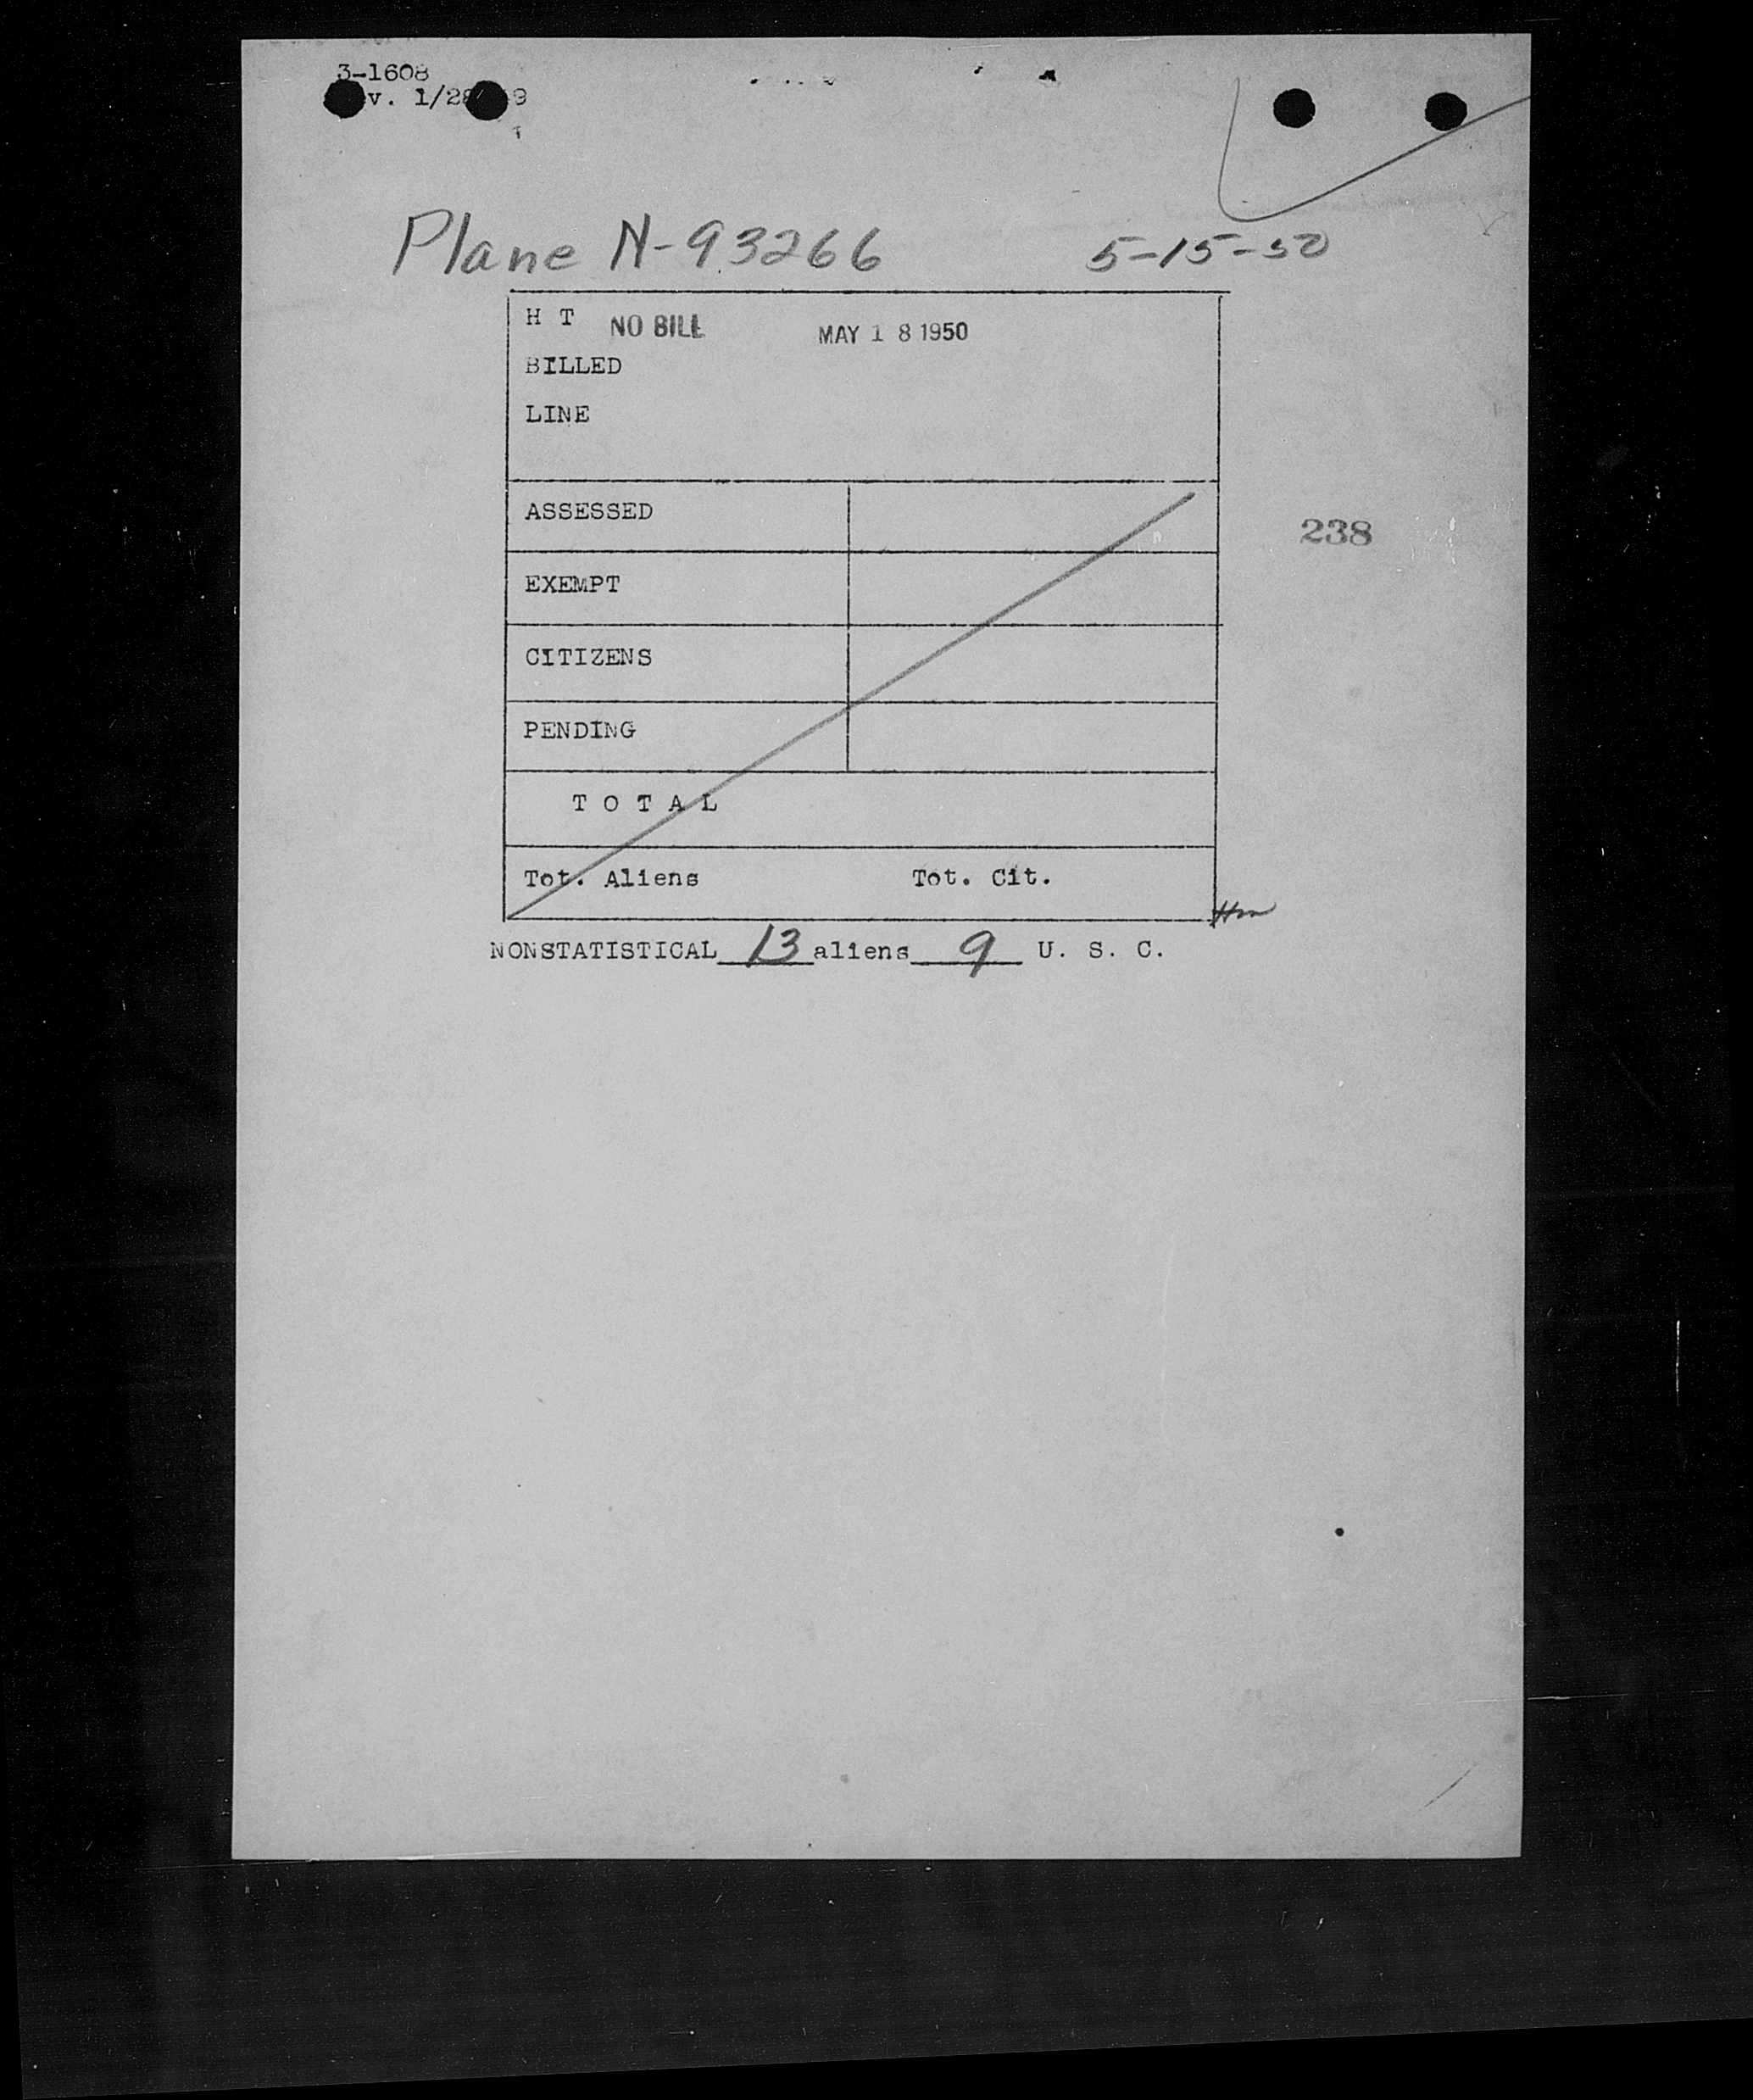 3-1608
v. 1/28 9
Plane N-93266 5-15-50
H T NO BILL MAY 18 1950
BILLED
LINE
ASSESSED
238
EXEMPT
CITIZENS
PENDING
T O T A L
Tot. Aliens Tot. Cit.
NONSTATISTICAL 13 aliens 9 U. S. C.